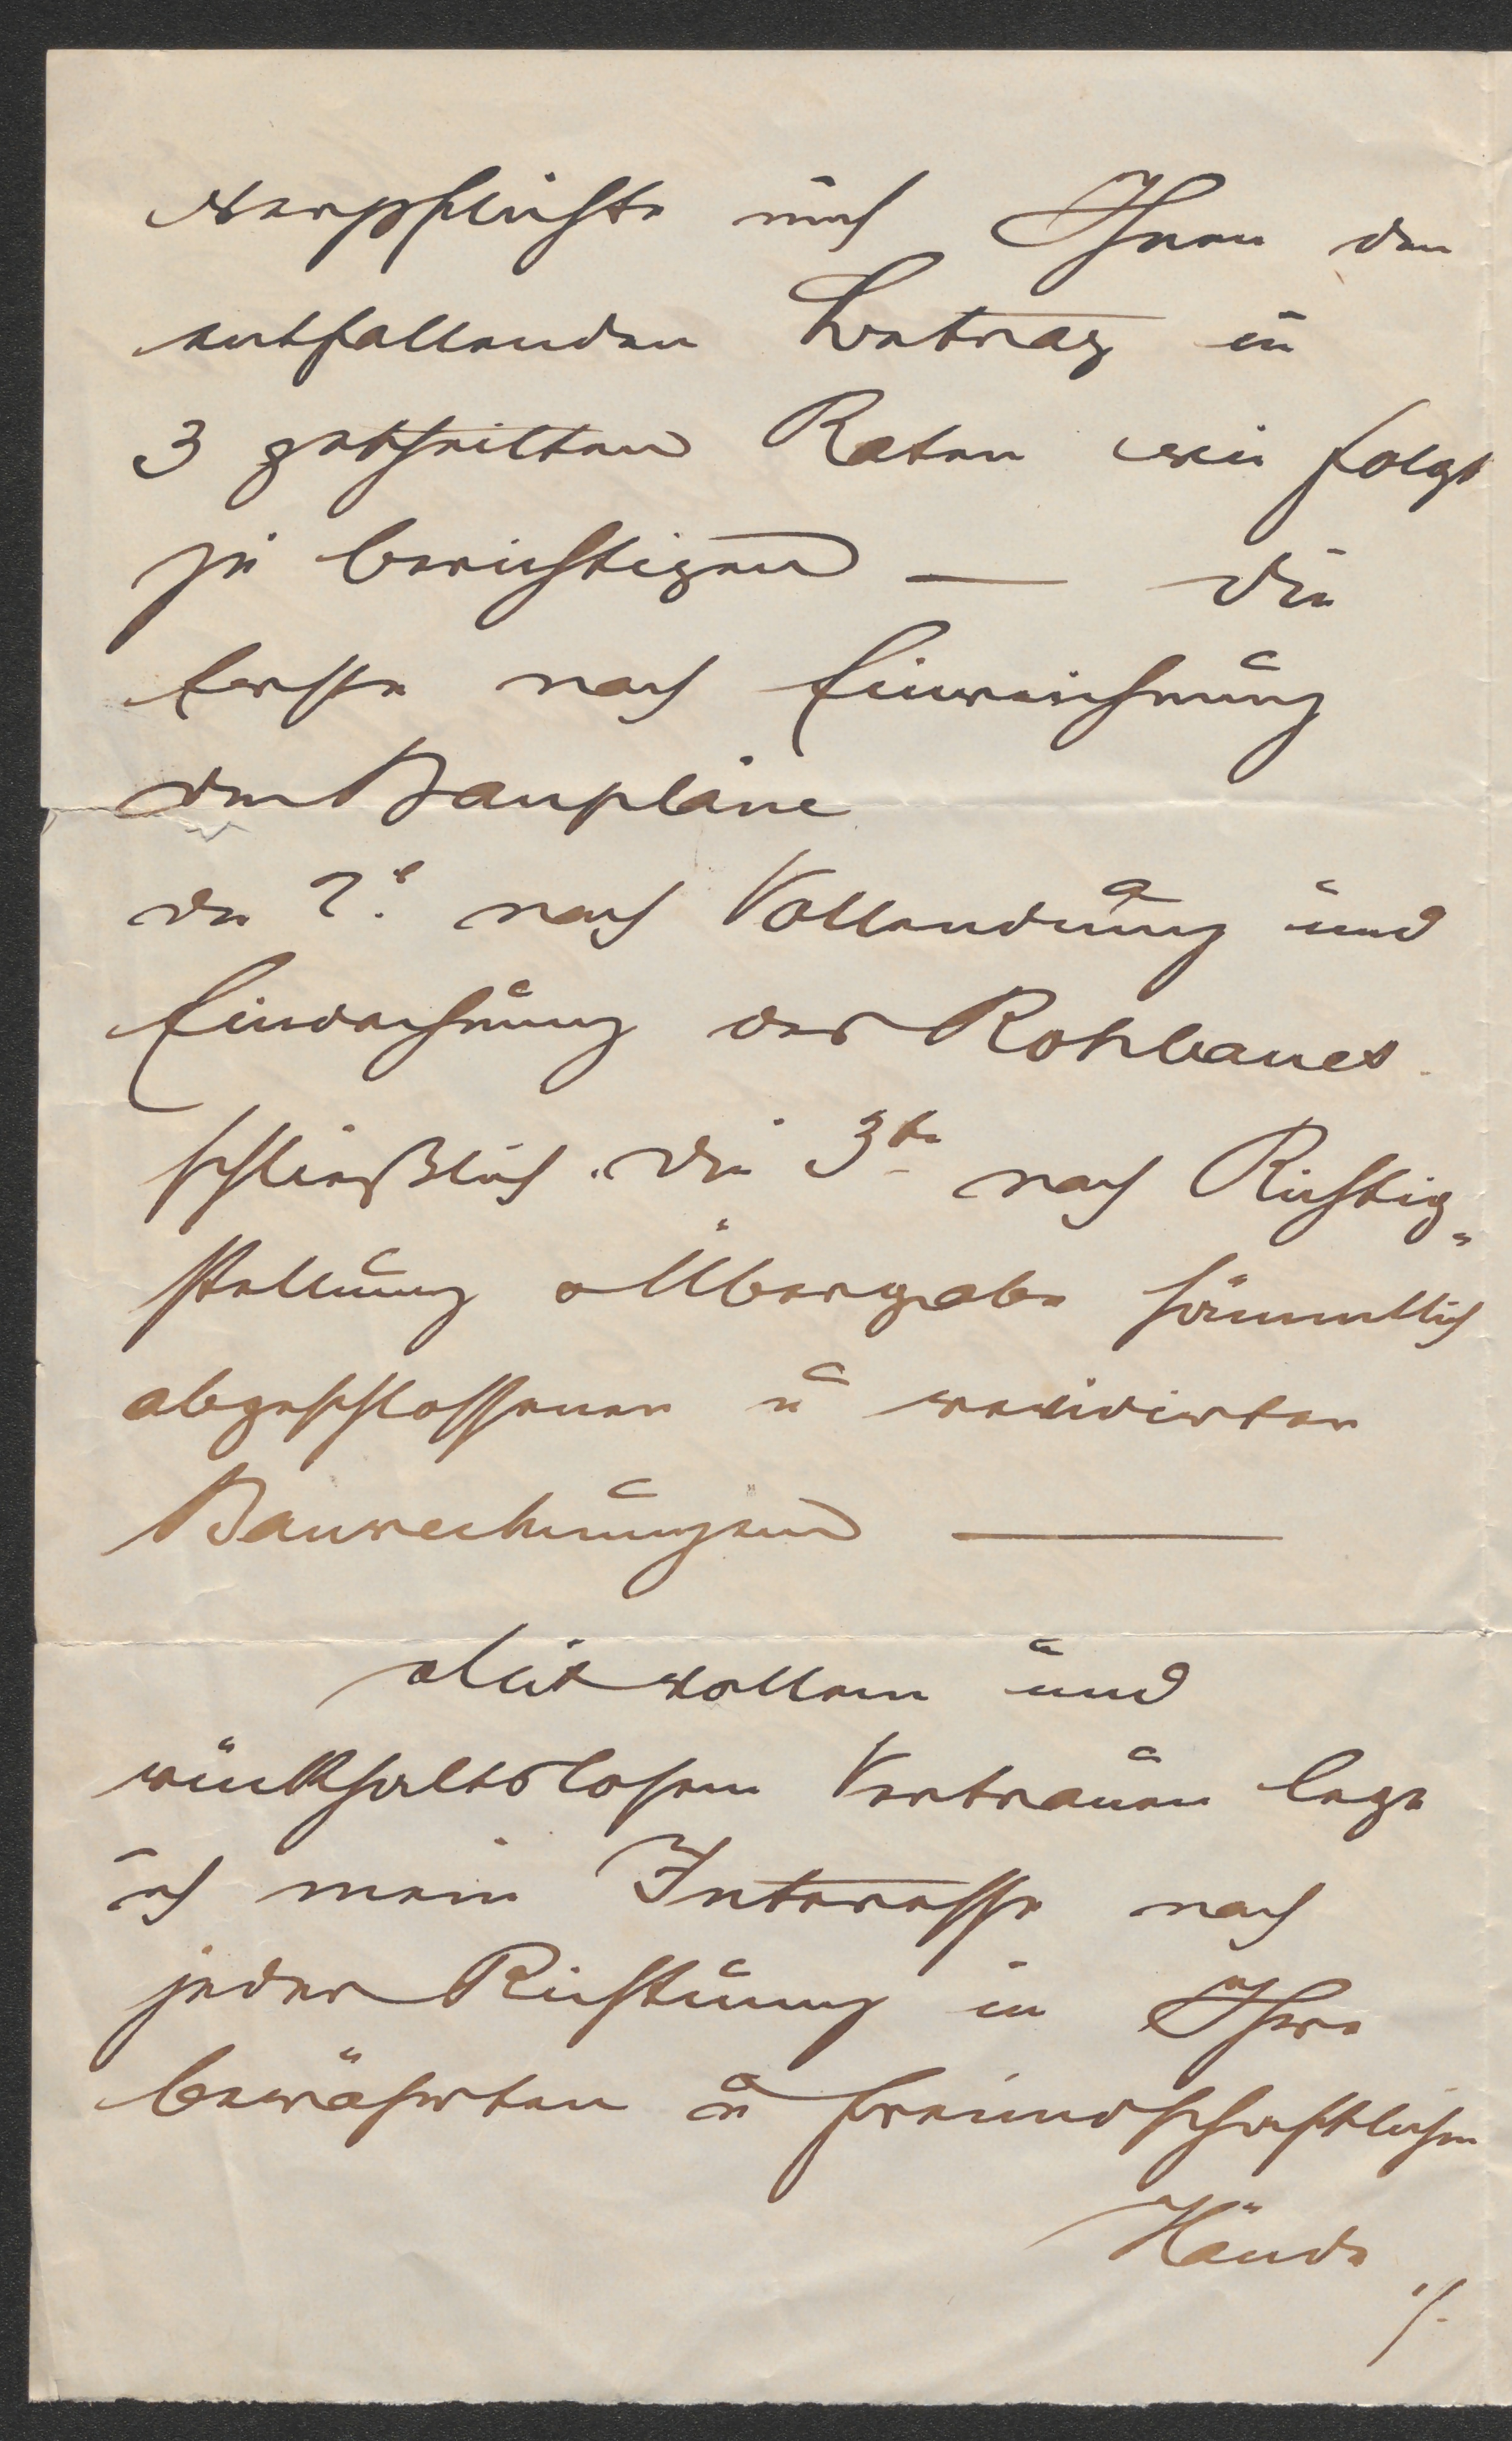 verpflichte mich Ihnen den
entfallenden Betrag in
3 getheilten Raten wie folgt
zu berichtigen — die
Erste nach Einreichnung
der Baupläne
die 2te nach Vollendung und
Eindachnung des Rohbaues
schließlich die 3te nach Richtig„
stellung Übergabe sämmtlich
abgeschlossener u revidirter
Baurechnungen —
Mit vollem und
rückhaltslosem Vertrauen lege
ich mein Interesse nach
jeder Richtung in Ihre
bewährten u freundschaftlichen
Hände
./.